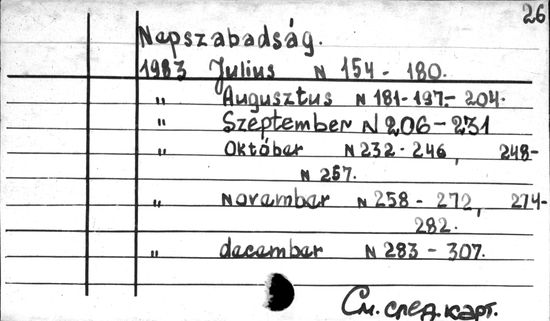 26
Nepszabadság.
1983 Julius N 154 - 180.
" Augusztus N 181-197- 204.
" Szeptember N 206-231
" Október N 232-246, 248-
N 257.
" November N 258 - 272, 274-
282.
" december N 283 - 307.
См. след. карт.